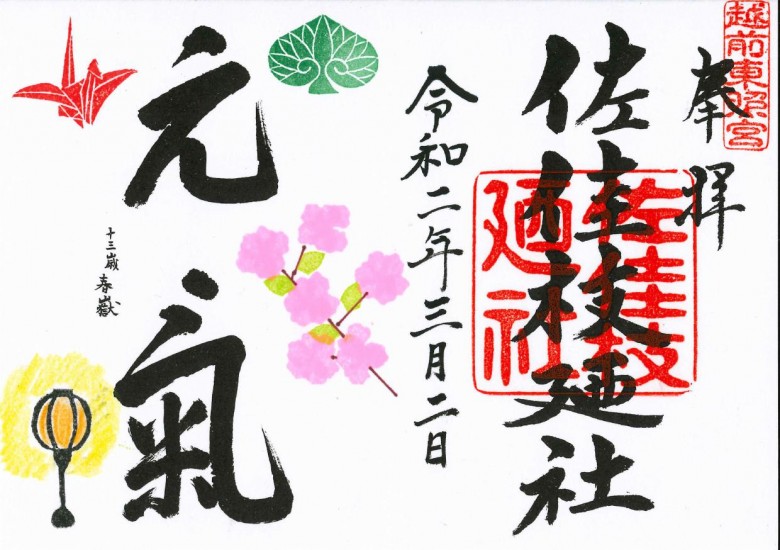 越前東照宮
奉拝
佐佳枝廼社
佐佳枝
廼社
令和二年三月二日
元氣
十三歳 春嶽